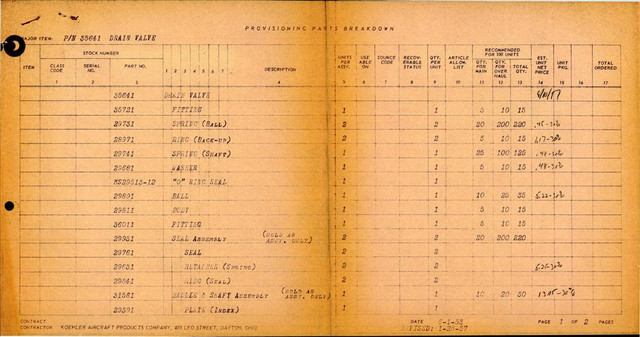 PROVISIONING PARTS BREAKDOWN
MAJOR ITEM: P/N 35641 DRAIN VALVE
ITEM CLASS CODE STOCK NUMBER SERIAL NO. PART NO. 1 2 3 4 5 6 7 DESCRIPTION UNITS PER ASSY. USE ABLE ON SOURCE CODE RECOV- ERABLE STATUS QTY. PER UNIT ARTICLE ALLOW. LIST RECOMMENDED FOR 100 UNITS QTY. FOR MAIN QTY. FOR OVER HAUL TOTAL QTY. EST. UNIT NET PRICE UNIT PKG. TOTAL ORDERED
35641 DRAIN VALVE
35721 FITTING 1 1 5 10 15
29731 SPRING (BALL) 2 2 20 200 220
28971 RING (BACK-UP) 2 2 5 10 15
29741 SPRING (SHAFT) 1 1 25 100 125
29681 WASHER 1 1 5 10 15
MS29513-12 "O" RING SEAL 1 1
29891 BALL 1 1 10 25 35
29811 BODY 1 1 5 10 15
36011 FITTING 1 1 5 10 15
29951 SEAL ASSEMBLY (SOLD AS ASSY. ONLY) 2 2 20 200 220
29761 SEAL 2 2
29631 RETAINER (SPRING) 2 2
29641 RING (SEAL) 2 2
31581 & SHAFT ASSEMBLY (SOLD AS ASSY. ONLY) 1 1 10 20 30
29591 PLATE (INDEX) 1 1
CONTRACT
CONTRACTOR KOEHLER AIRCRAFT PRODUCTS COMPANY, 409 LEO STREET, DAYTON, OHIO
DATE
REVISED: 1-28-57
PAGE 1 OF 2 PAGES